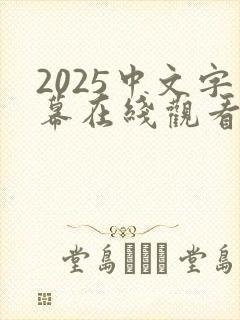 2025中文字
幕在綫觀看
堂島 堂島